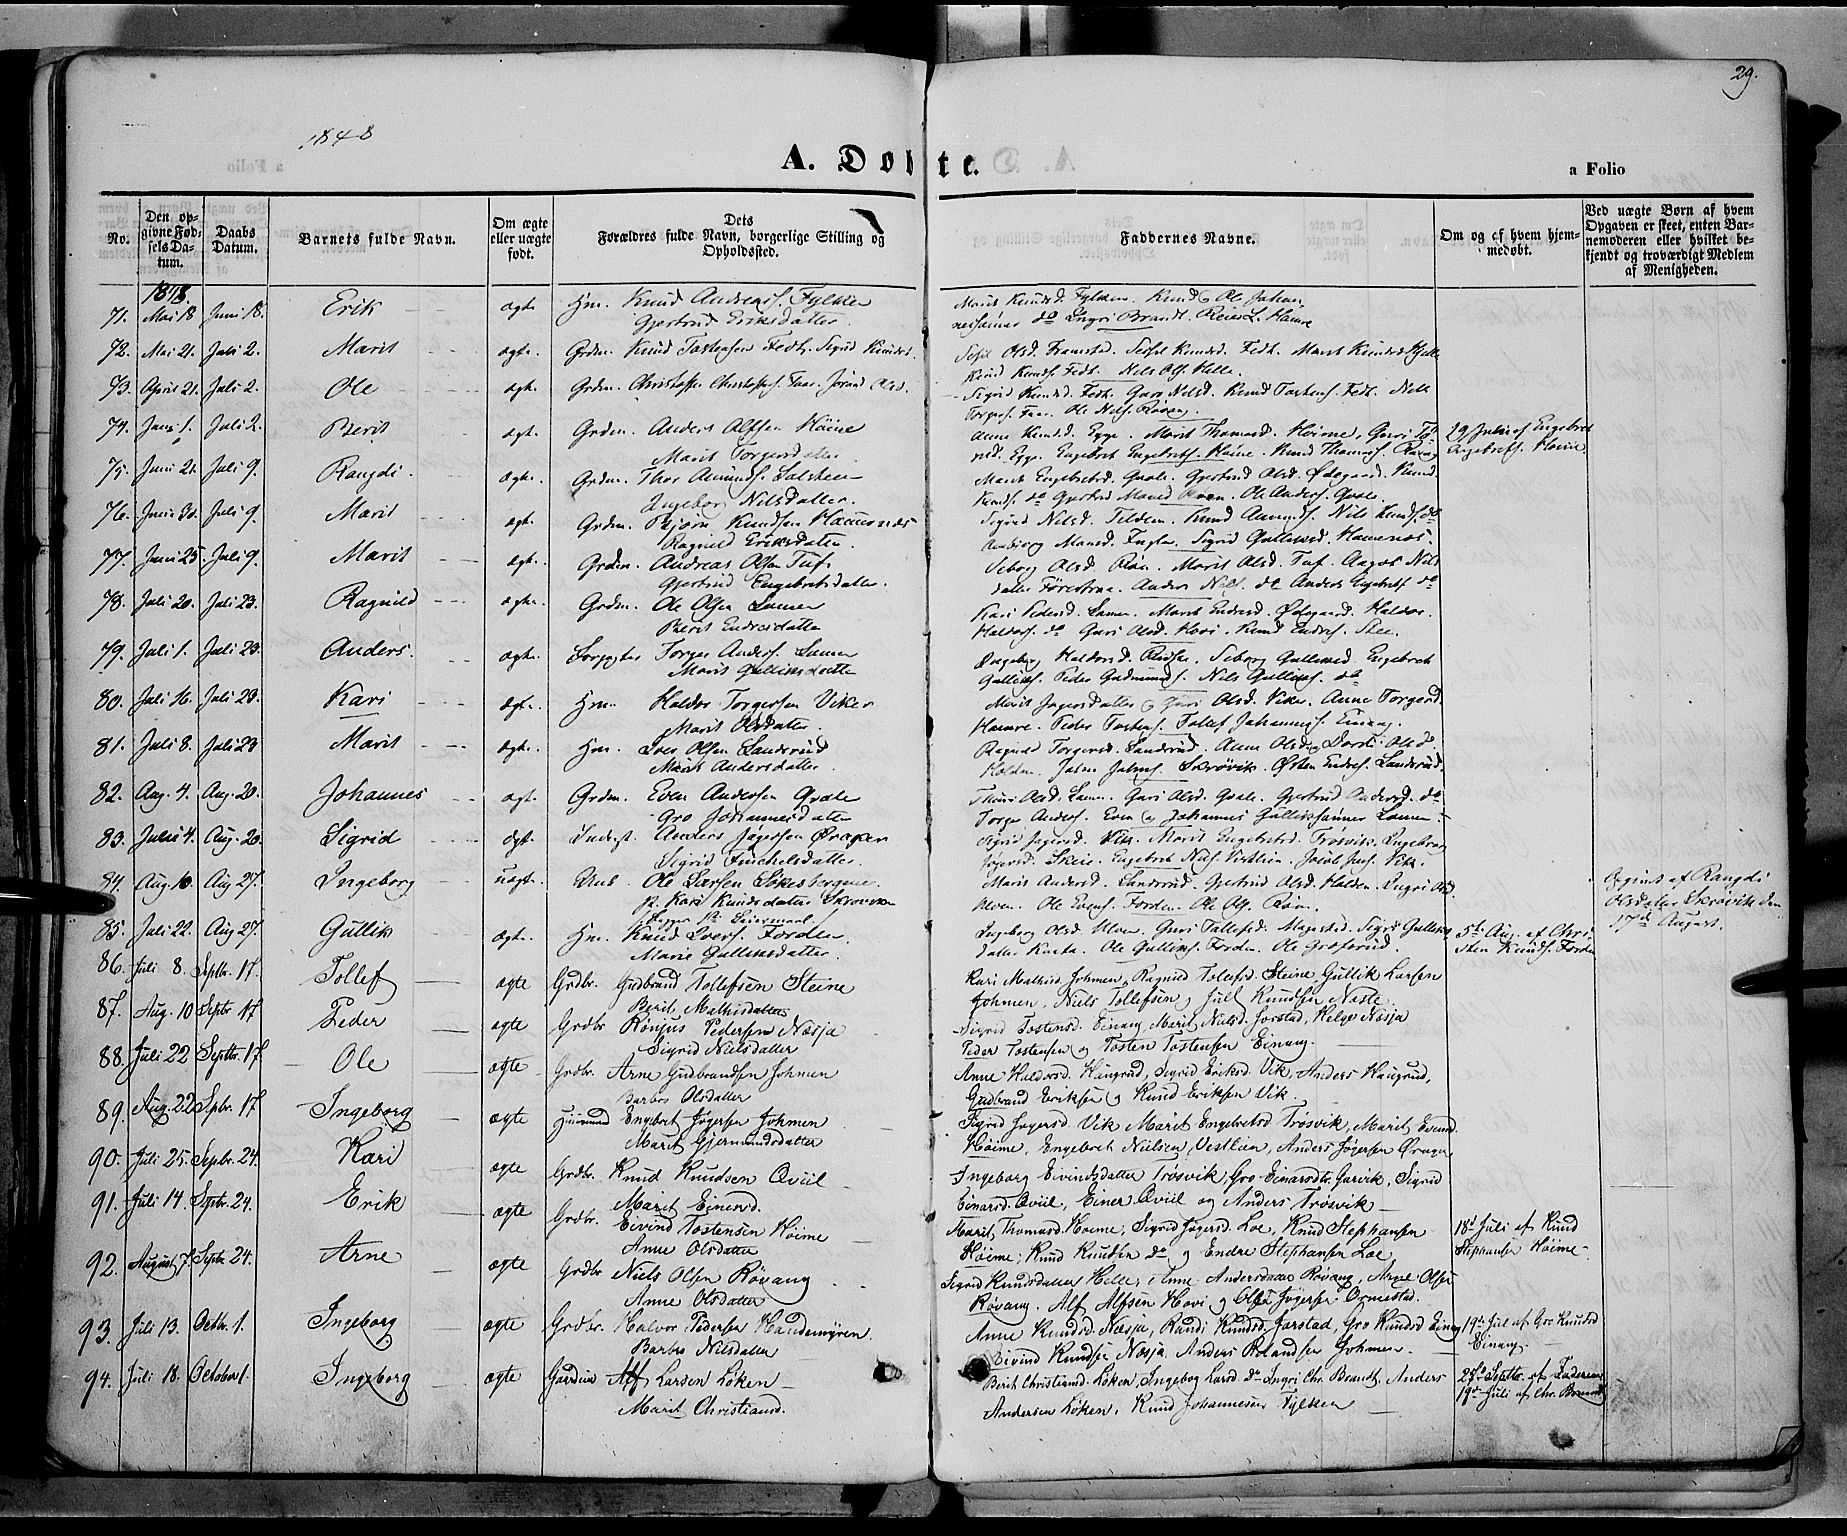 29.
1848
A. Døbte.
a Folio
No.
Den opgivne Fødsels Datum.
Daabs Datum.
Barnets fulde Navn.
Om ægte eller uægte født.
Dets Forældres fulde Navn, borgerlige Stilling og Opholdssted.
Faddernes Navne.
Om og af hvem hjemmedøbt.
Ved uægte Børn af hvem Opgaven er skeet, enten Barnemoderen eller hvilket bekjendt og troværdigt Medlem af Menigheden.
1848.
71. Mai 18 Juni 18. Erik ægte. Hm. Knud Andreass. Fylken
Gjertrud Eriksdatter.
Marit Knudsd. Fylken. Knud og Ole Johannessønner do Ingri Brandt.
72. Mai 21. Juli 2. Marit ægte. Grdm. Knud Tostensen Fedt, Sigrid Knudsd.
Knud Knuds. Fedt. Nels Ols. Helle.
73. April 21. Juli 2. Ole ægte. Grdm. Christoffer Christophs. Faae. Jorand Olsd.
Sigrid Knudsd. Fedt. Guri Nelsd. Knud Tostens. Fedt. Nels
Torges. Faae. Ole Nels. Røvang.
74. Juni 1. Juli 2. Berit ægt. Grdm. Anders Alfsen Høime
Marit Torgersdatter
Anne Knudsd. Egge. Marit Thomasd. Høime, Guri
Egge. Engebret Engebrets. Høime. Knud Thomas. Røvang
29 Juni af Engebret
Engebrets. Høime
75. Juni 21. Juli 9. Rangdi ægte. Grdm. Thor Amunds.
Ingeborg Nilsdatter.
Marit Engebretsd. Qvale. Gjertrud Olsd. Ødegaard. Knud
Knuds. do Ole Anders. Qvale.
76. Juni 30. Juli 9. Marit ægt. Grdm. Bjørn Knudsen Hammernæs
Ragnild Eriksdatter.
Sigrid Nelsd. Knud Amunds. Nils Knuds. do
77. Juni 25. Juli 9. Marit ægt. Grdm. Andreas Olsen Tuf.
Gjertrud Engebretsdatter.
Seborg Olsd. Røn. Marit Olsd. Tuf. Aagot Nils
datter Førestraa. Anders Nels. do Anders Engebrets. do
78. Juli 20. Juli 23. Ragnild ægte. Grdm. Ole Olsen Lomen
Berit Endresdatter
Kari Pedersd. Lomen. Marit Endresd. Ødegaard. Haldor
Haldors. do Guri Olsd. Hovi. Knud Endres. Stee.
79. Juli 1. Juli 23. Anders. ægte. Torger Anders. Lomen
Marit Gulliksdatter
Ingeborg Haldorsd. Seborg Gulliksd. Engebret
Gulliks. Peder Gudmunds. Nils Gulliks. do
80. Juli 16. Juli 23. Kari ægt. Hm. Haldor Torgersen Viken
Marit Olsdatter
Marit Jøgersdatter og Guri Olsd. Viken. Anne Torgersd.
Hamre. Peder Tostens. Tollef Johanness. Einang.
81. Juli 8. Juli 23 Marit ægt. Hm. Iver Olsen Sandsrud
Marit Andersdatter.
Ragnild Torgersd. Sandsrud. Anne Olsd. og Dordi Olsd
Holden. Skrøvik. Østen Endres. Sandsrud.
82. Aug. 4. Aug. 20. Johannes ægt. Grdm. Even Andersen Qvale
Gro Johannesdatter
Olsd. Lomen. Guri Olsd. Qvale. Gjertrud Andersd. do
Torger Anders. Even og Johannes Gulliksønner Lomen.
83. Juli 4. Aug. 20. Sigrid ægt. Inderst. Anders Jøgersen Øvager
Sigrid
Sigrid Jøgersd. Vik. Marit Engebretsd. Trøsvik. Ingeborg
Jøgersd. Skeie. Engebret Nels. Vestlien. Vik.
84. Aug. 10 Aug 27. Ingeborg uægt. Unk. Ole Larsen
P. Kari Knudsdatter Skrøviken
Begges 1ste Leiermaal.
Marit Andersd. Sandsrud. Gjertrud Olsd. Holden. Ingri Olsd
Ulven. Ole Evens. Forden. Ole Ols. Røn.
Opgivet af Rangdi
Olsdatter Skrøvik den
17de August.
85. Juli 22. Aug 27. Gullik ægte. Hm. Knud Ivers. Forden
Marie Gulliksdatter
Ingeborg Olsd. Ulven. Guri Tollefsd. Magestad. Sigrid Gulliks
datter Kvita. Ole Gulliks. Forden. Ole
5te Aug. af Christen Knuds. Forden
86. Juli 8. Septbr. 17. Tollef ægte Grdbr. Gudbrand Tollefsen Steine
Berit Mathisdatter
Kari Mathisd Johmen, Ragnild Tollefsd. Steine, Gullik Larsen
Johmen, Niels Tollefsen og Juul Knudsen Næste.
87. Aug. 10 Septbr 17 Peder ægte Grdbr. Rønjus Pedersen Næsja
Sigrid Nielsdatter
Sigrid Tostensd. Einang, Marit Nielsd. Jarstad, Helge Næsja
Peder Tostensen og Tosten Tostensen Einang.
88. Juli 22 Septbr. 17. Ole ægte Grdbr. Arne Gudbrandsen Johmen
Barbro Olsdatter
Anne Haldorsd. Haugrud, Sigrid Eriksd. Vik, Anders Haugrud,
Gudbrand Eriksen og Knud Eriksen Vik.
89. Aug. 22 Septbr. 17 Ingeborg ægte Huusmand Engebret Jøgersen Johmen
Marit Gjermundsdatter
Sigrid Jøgersd. Vik Marit Engebretsd Trøsvik, Marit Evind
Høime, Engebret Nielsen Vestlien, Anders Jøgersen Øvager
90. Juli 25. Septbr. 24. Kari ægte Grdbr. Knud Knudsen Qviil
Marit Einersd.
Ingeborg Eivindsdatter Trøsvik, Gro Einarsdtr. Garvik, Sigrid
Einarsd. Qviil, Einer Qviil og Anders Trøsvik
91. Juli 14. Septbr. 24. Erik ægte Grdbr. Eivind Tostensen Høime
Anne Olsdatter
Marit Thomasd. Høime, Sigrid Jøgersd. Loe, Knud Stephansen
Høime, Knud Knudsen do og Endre Stephansen Loe
18de Juli af Knud
Stephansen Høime
92. August 7. Septbr 24. Arne ægte Grdbr Niels Olsen Røvang
Anne Olsdatter
Sigrid Knudsdatter Helle, Anne Andersdatter Røvang, Arne Olsen
Røvang. Alf Alfsen Hovi og Jøgersen Ormestad.
93. Juli 13. Octbr. 1. Ingeborg ægte Grdbr. Halvor Pedersen Handemyren.
Barbro Nilsdatter
Anne Knudsd. Næsja, Randi Knudsd Jarstad, Gro Knudsd Einang
Eivind Knudsen Næsja Anders Rolandsen Johmen
19de Juli af Gro Knudsd
Einang
94. Juli 18. October 1. Ingeborg ægte Gaardm. Alf Larsen Løken
Marit Christiansd.
Berit Christiansd. Løken, Ingebog Larsd do Ingri Chr. Brandt. Anders
Andersen Løken, Knud Johannesen Fylken
Septbr. af Faderen
19de Juli af Chr. Brandt